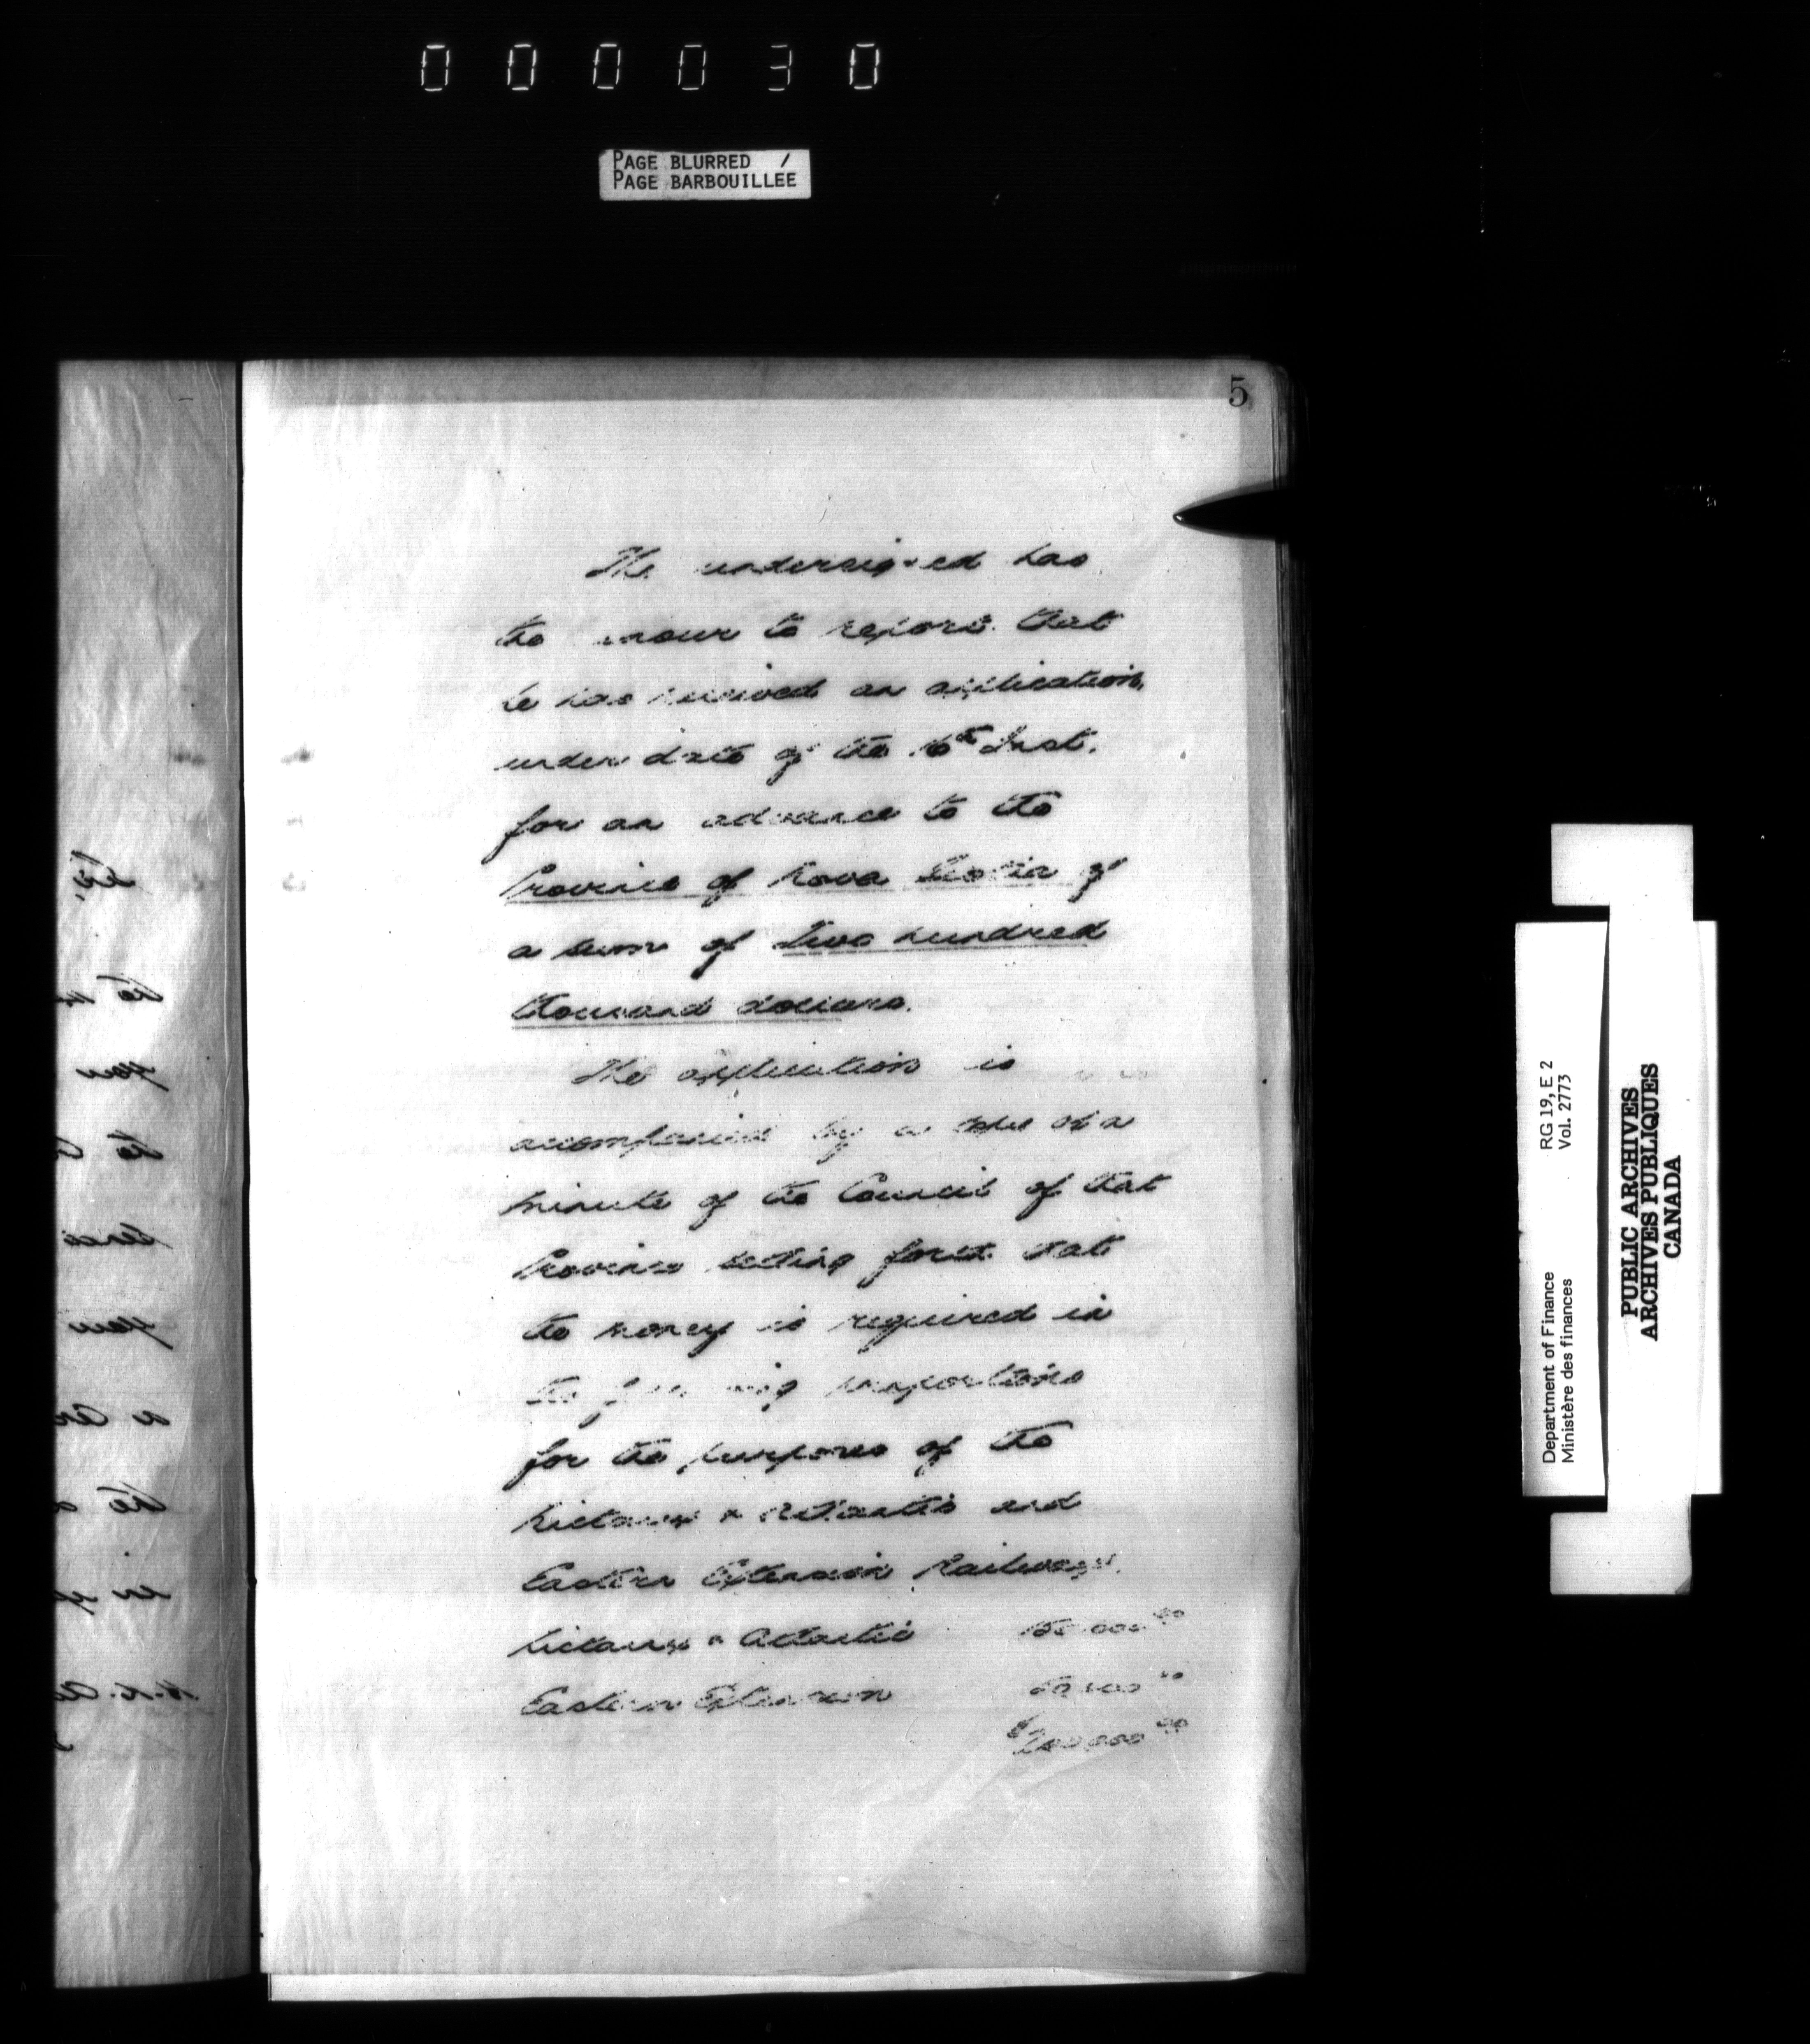 000030
PAGE BLURRED /
PAGE BARBOUILLEE
5
The undersigned has
the honour to report that
he has received an application,
under date of the 16th Inst.
for an advance to the
Province of Nova Scotia of
a sum of Two hundred
thousand dollars.
The application is
accompanied by a copy of a
minute of the Council of that
Province setting forth that
the money is required in
the following proportions
for the purposes of the
Pictou & Atlantic and
Eastern Extension Railways.
Pictou & Atlantic 150.000 00
Eastern Extension 50,000 00
$200,000 00
Department of Finance RG 19, E 2
Ministère des finances Vol. 2773
PUBLIC ARCHIVES
ARCHIVES PUBLIQUES
CANADA